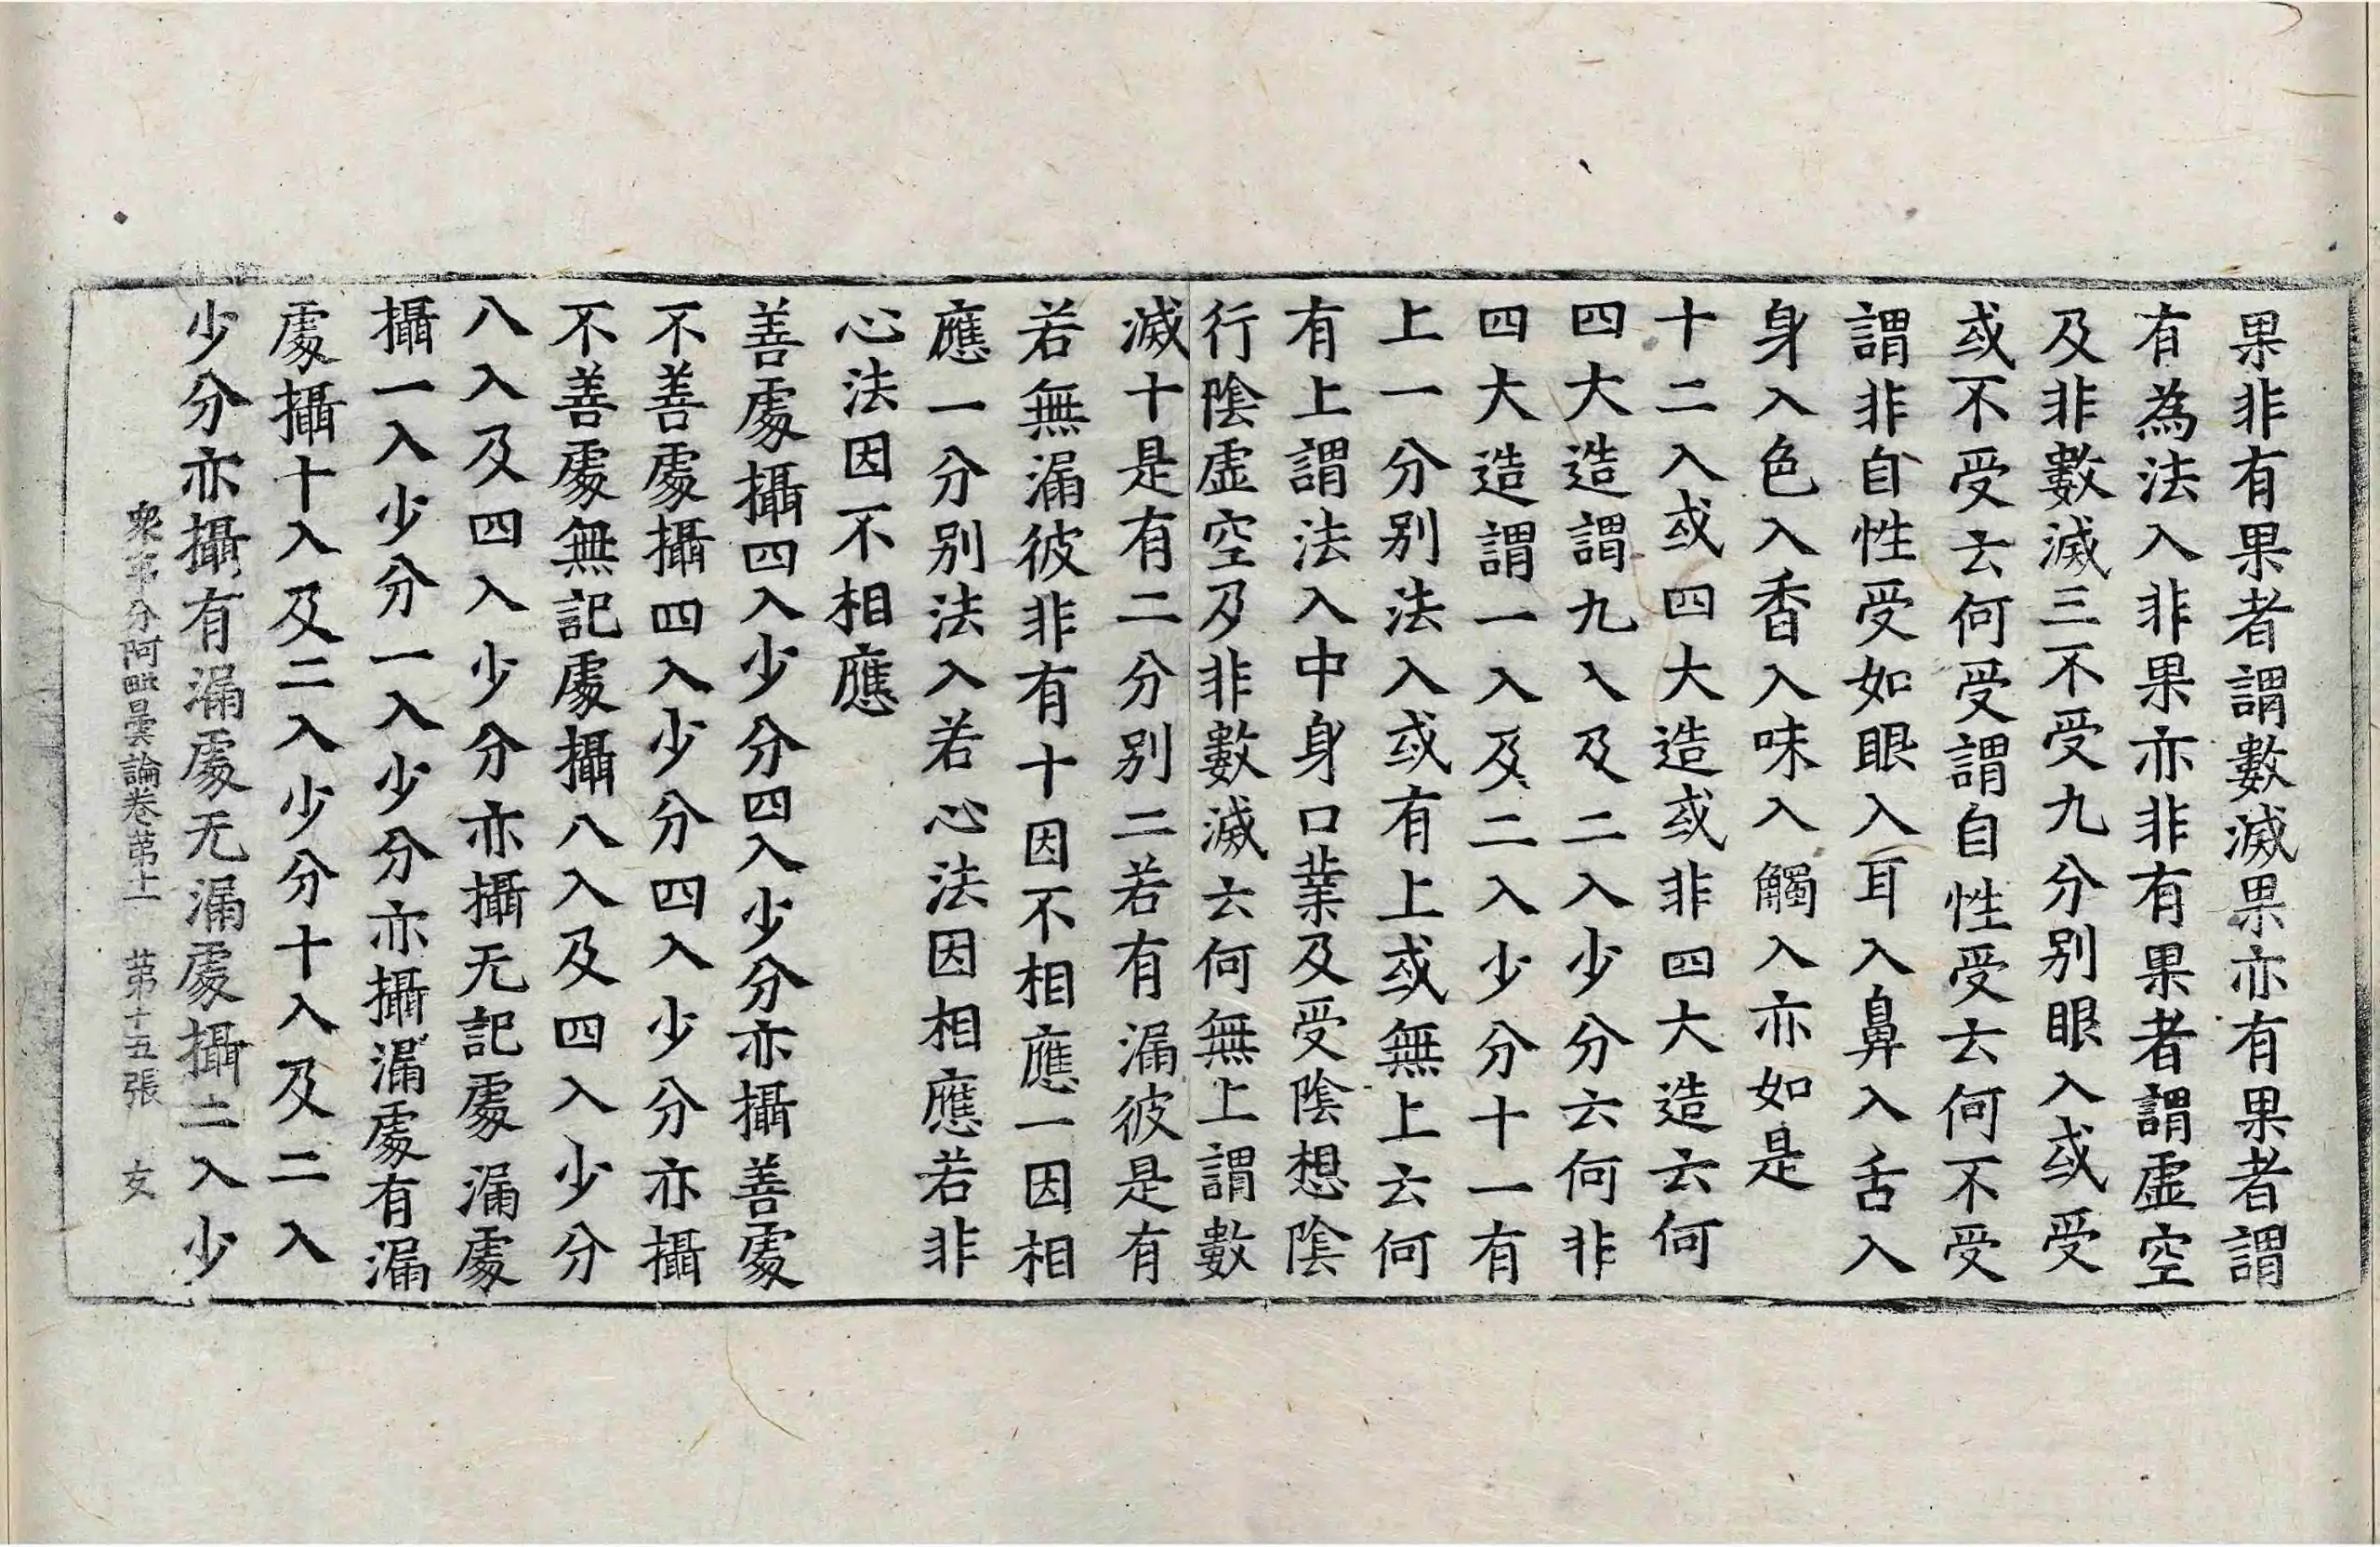 果非有果者謂數滅果亦有果者謂
有為法入非果亦非有果者謂虛空
及非數滅三不受九分別眼入或受
或不受云何受謂自性受云何不受
謂非自性受如眼入耳入鼻入舌入
身入色入香入味入觸入亦如是
十二入或四大造或非四大造云何
四大造謂九入及二入少分云何非
四大造謂一入及二入少分十一有
上一分別法入或有上或無上云何
有上謂法入中身口業及受陰想陰
行陰虛空及非數滅云何無上謂數
滅十是有二分別二若有漏彼是有
若無漏彼非有十因不相應一因相
應一分別法入若心法因相應若非
心法因不相應
善處攝四入少分四入少分亦攝善處
不善處攝四入少分四入少分亦攝
不善處無記處攝八入及四入少分
八入及四入少分亦攝无記處漏處
攝一入少分一入少分亦攝漏處有漏
處攝十入及二入少分十入及二入
少分亦攝有漏處无漏處攝二入少
衆事分阿毗曇論卷苐上　苐十五張　女